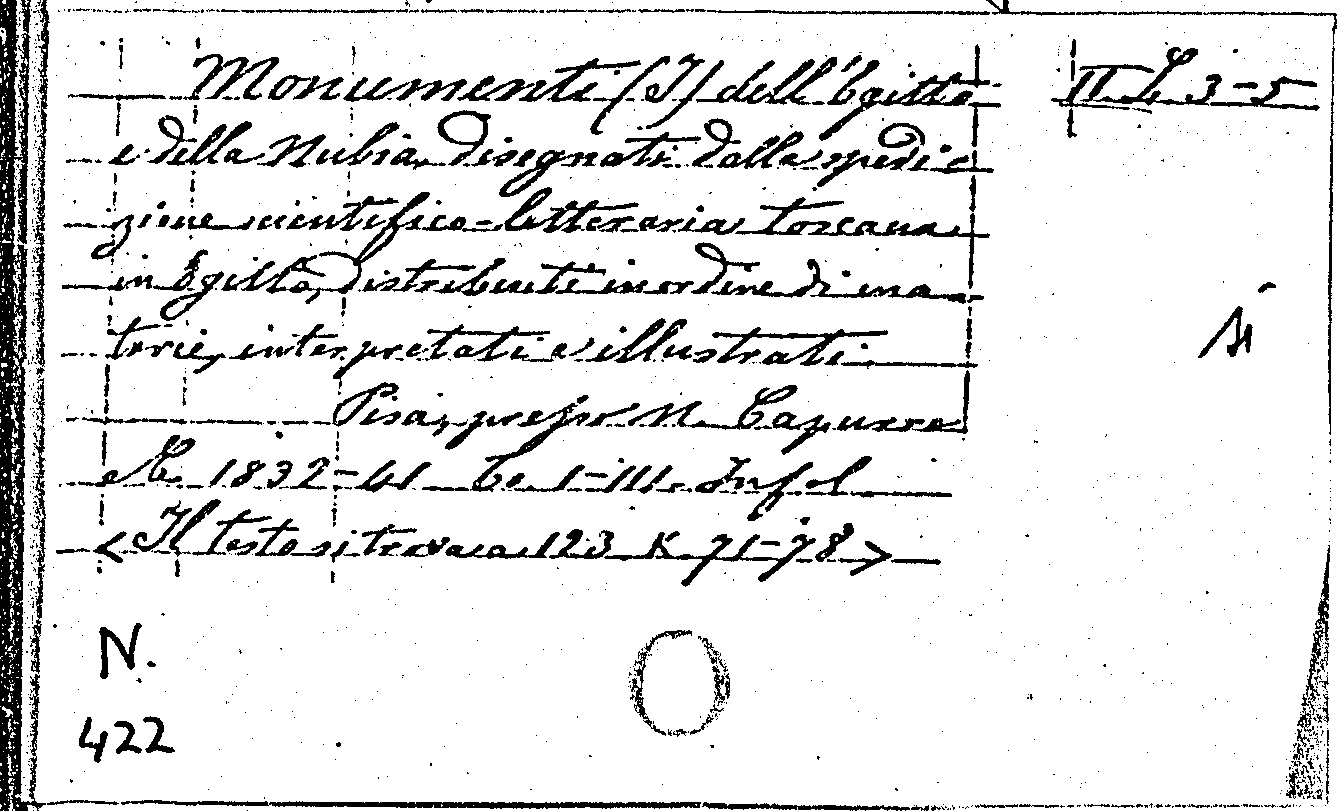 Monumenti (I) dell'Egitto II. L. 3-5
e della Nubia, disegnati dalla spedi-
zione scientifico-letteraria toscana
in Egitto, distribuiti in ordine di ma-
terie, interpretati e illustrati.
Pisa, presso N. Capurro
e C. 1832-41 To. I-III. In fol.
<Il testo si trova a 123 K 71-78>
N.
422